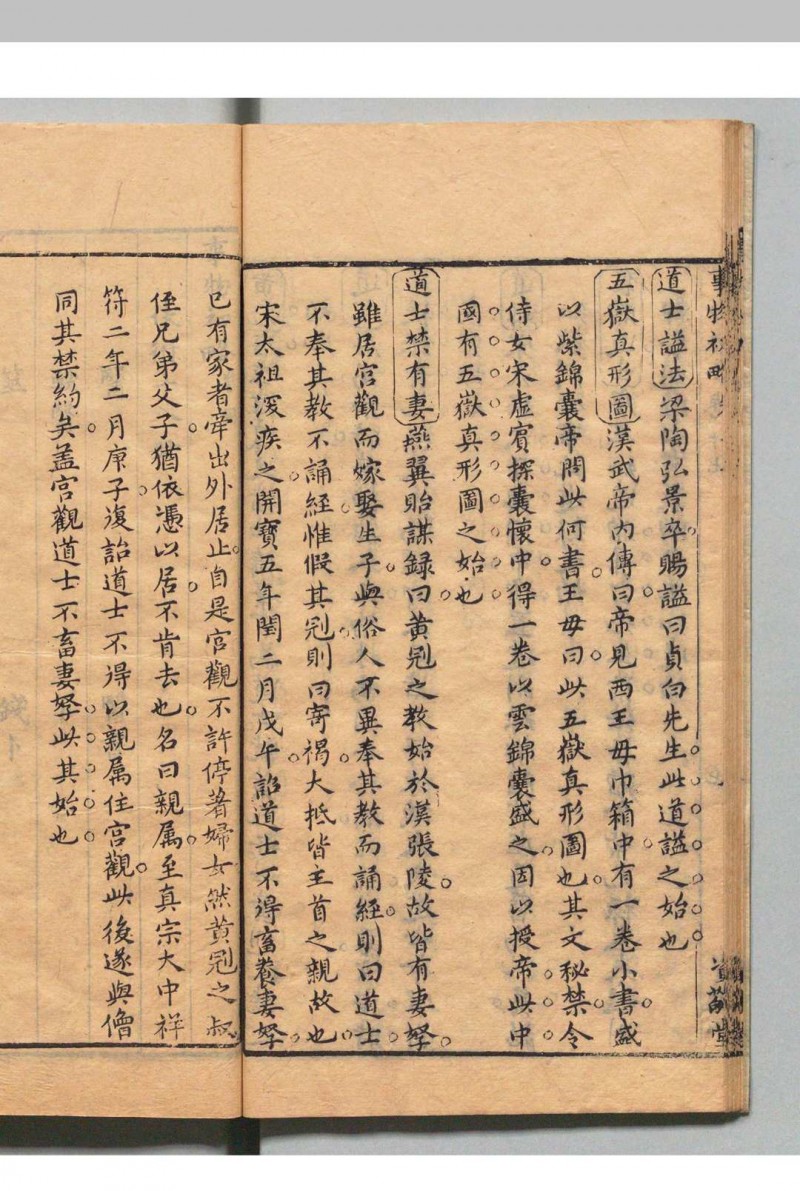 事物初略
道士謚法梁陶弘景卒賜謚曰貞白先生此道謚之始也
五嶽真形圖漢武帝内傳曰帝見西王母巾箱中有一卷小書盛
以紫錦囊帝問此何書王母曰此五嶽真形圖也其文秘禁令
侍女宋虛賓探囊懷中得一卷以雲錦囊盛之因以授帝此中
國有五嶽真形圖之始也
道士禁有妻燕翼貽謀録曰黄冠之教始於漢張陵故皆有妻孥
雖居宫觀而嫁娶生子與俗人不異奉其教而誦經則曰道士
不奉其教不誦經惟假其冠則曰寄褐大抵皆主首之親故也
宋太祖深疾之開寶五年閏二月戊午詔道士不得畜養妻孥
已有家者牽出外居止自是宫觀不許停著婦女然黄冠之叔
侄兄弟父子猶依憑以居不肯去也名曰親属至真宗大中祥
符二年二月庚子復詔道士不得以親属住宫觀此後遂與僧
同其禁約矣盖宫觀道士不畜妻孥此其始也